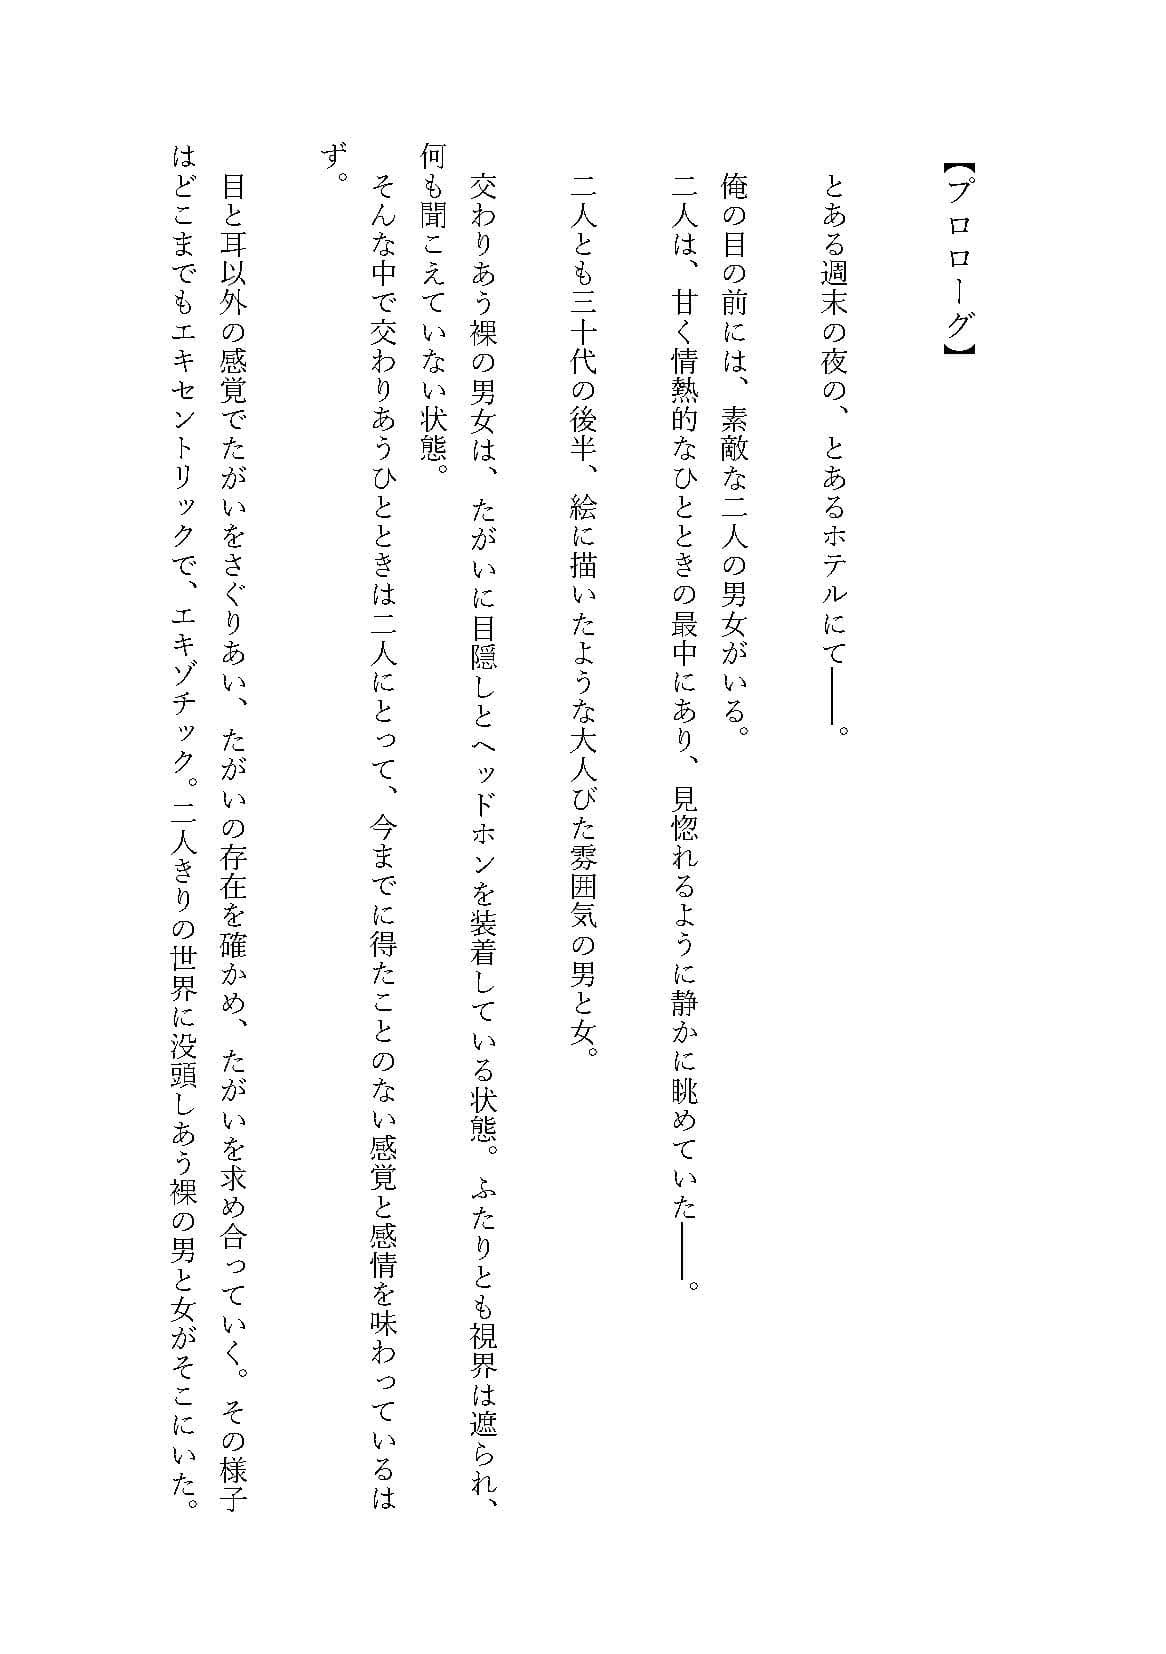 【プロローグ】
とある週末の夜の、とあるホテルにて――。
俺の目の前には、素敵な二人の男女がいる。
二人は、甘く情熱的なひとときの最中にあり、見惚れるように静かに眺めていた――。
二人とも三十代の後半、絵に描いたような大人びた雰囲気の男と女。
交わりあう裸の男女は、たがいに目隠しとヘッドホンを装着している状態。ふたりとも視界は遮られ、
何も聞こえていない状態。
そんな中で交わりあうひとときは二人にとって、今までに得たことのない感覚と感情を味わっているは
ず。
目と耳以外の感覚でたがいをさぐりあい、たがいの存在を確かめ、たがいを求め合っていく。その様子
はどこまでもエキセントリックで、エキゾチック。二人きりの世界に没頭しあう裸の男と女がそこにいた。